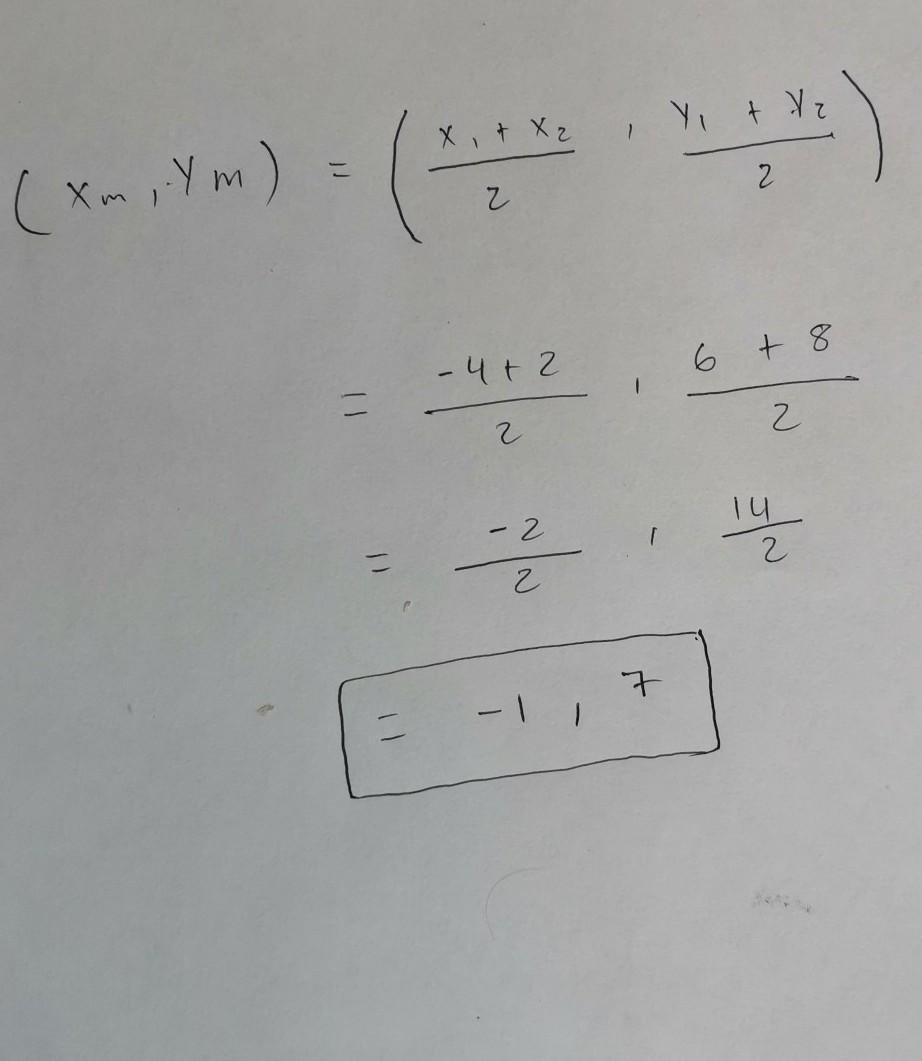 (xm, ym) = (x1 + x2 / 2 , y1 + y2 / 2)
= -4 + 2 / 2 , 6 + 8 / 2
= -2 / 2 , 14 / 2
= -1 , 7